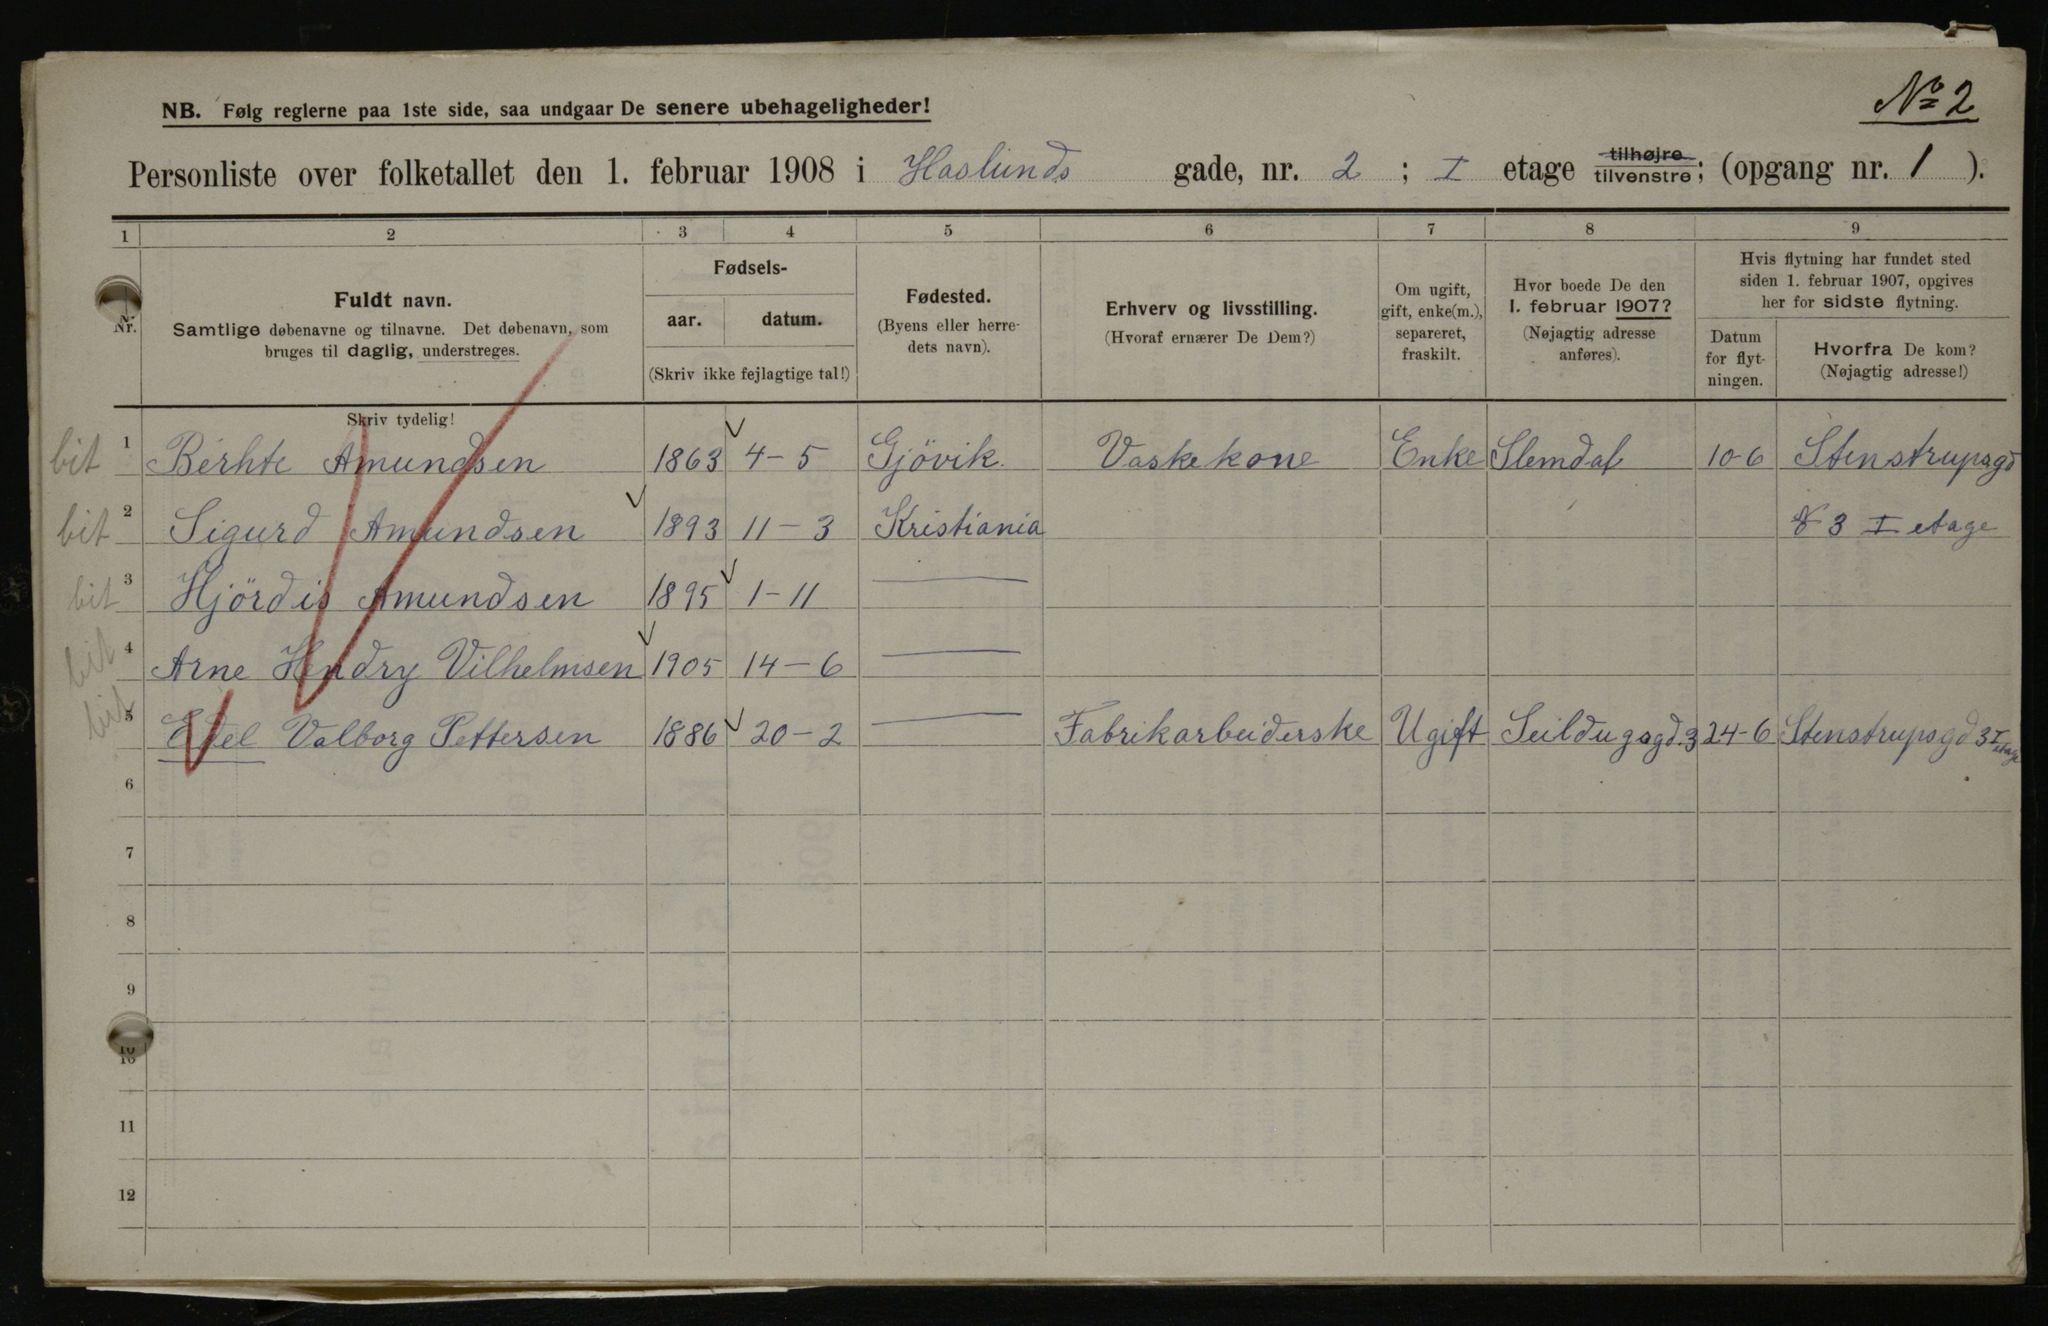 No 2
NB. Følg reglerne paa 1ste side, saa undgaar De senere ubehageligheder!
Personliste over folketallet den 1. februar 1908 i Haslunds gade, nr. 2 ; I etage tilhøjre tilvenstre; (opgang nr. 1 ).
1 2 3 4 5 6 7 8 9
Nr.
Fuldt navn.
Samtlige døbenavne og tilnavne. Det døbenavn, som
bruges til daglig, understreges.
Skriv tydelig!
Fødsels-
aar. datum.
(Skriv ikke fejlagtige tal!)
Fødested.
(Byens eller herre-
dets navn).
Erhverv og livsstilling.
(Hvoraf ernærer De Dem?)
Om ugift,
gift, enke(m.),
separeret,
fraskilt.
Hvor boede De den
1. februar 1907?
(Nøjagtig adresse
anføres).
Hvis flytning har fundet sted
siden 1. februar 1907, opgives
her for sidste flytning.
Datum
for flyt-
ningen.
Hvorfra De kom?
(Nøjagtig adresse!)
bit 1 Berhte Amundsen 1863 4-5 Gjövik. Vaskekone Enke Slemdal 10-6 Stenstrupsgd
bit 2 Sigurd Amundsen 1893 11-3 Kristiania 3 I etage
bit 3 Hjördis Amundsen 1895 1-11
bit 4 Arne Hendry Vilhelmsen 1905 14-6
bit 5 Edel Valborg Pettersen 1886 20-2 Fabrikarbeiderske Ugift Seildugsgd. 3 24-6 Stenstrupsgd 3 I etage
6
7
8
9
10
11
12